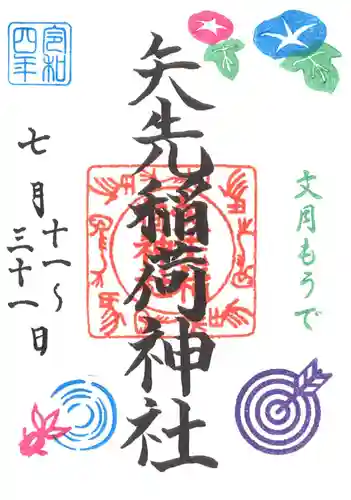 文月もうで
矢先稲荷神社
令和
四年
七月十一~
三十一日